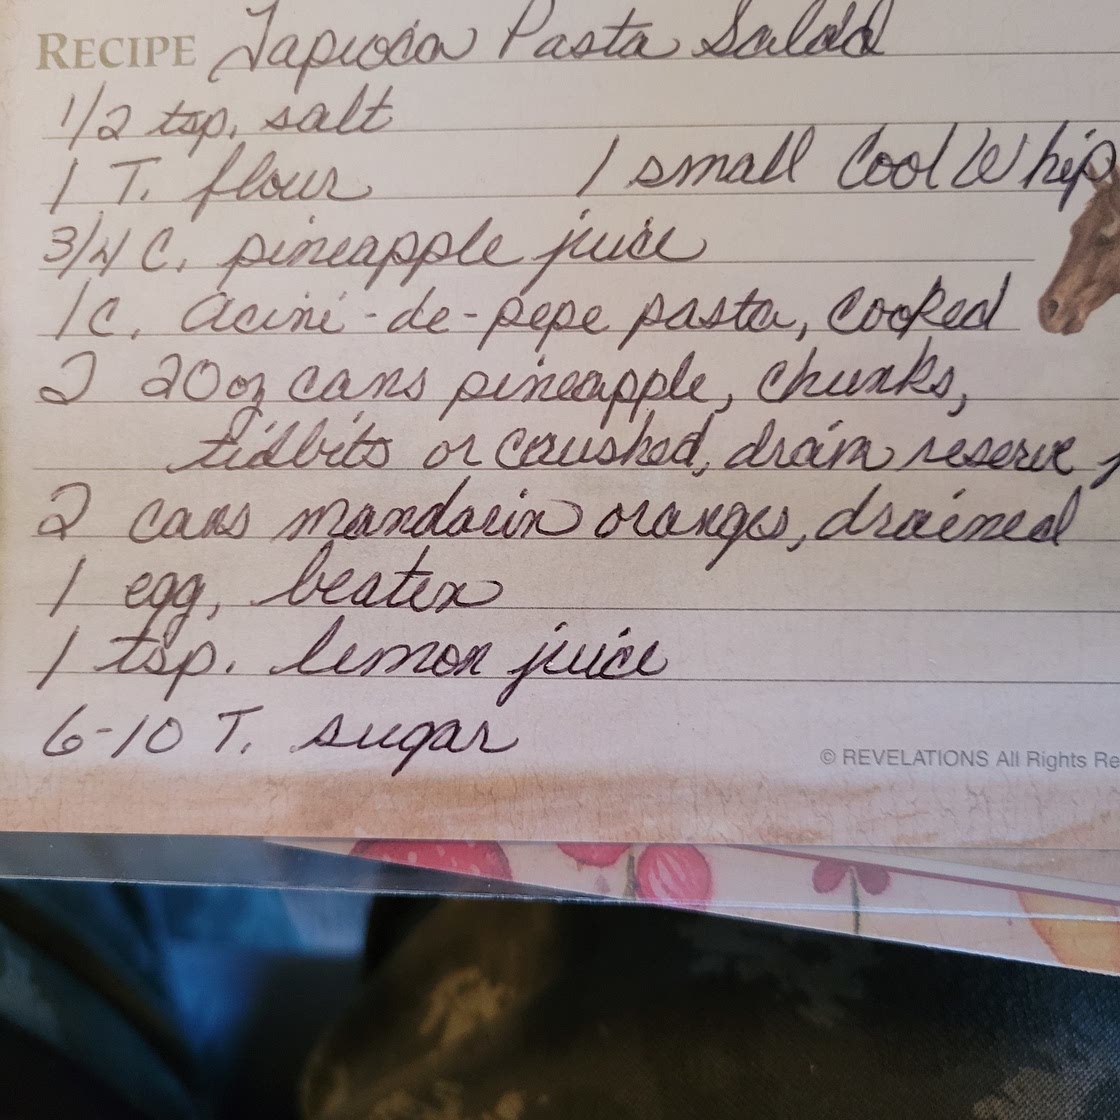 RECIPE Tapioca Pasta Salad
1/2 tsp. salt
1 T. flour 1 small Cool Whip
3/4 C. pineapple juice
1 c. acini-de-pepe pasta, cooked
2 20 oz cans pineapple, chunks,
tidbits or crushed, drain reserve
2 cans mandarin oranges, drained
1 egg, beaten
1 tsp. lemon juice
6-10 T. sugar
© REVELATIONS All Rights Re